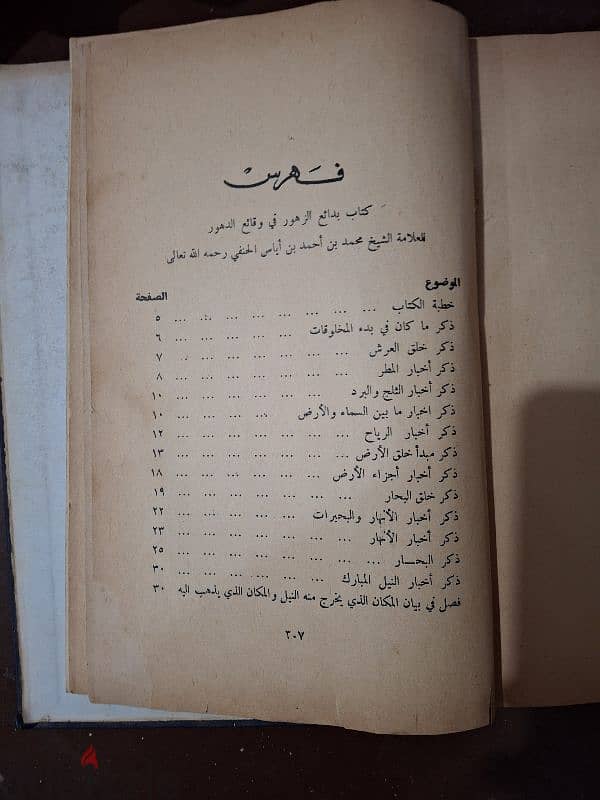 فهرس
كتاب بدائع الزهور في وقائع الدهور
للعلامة الشيخ محمد بن أحمد بن أياس الحنفي رحمه الله تعالى
الموضوع الصفحة
خطبة الكتاب ... ... ... ... ... ... ... ... ٥
ذكر ما كان في بدء المخلوقات ... ... ... ... ... ٦
ذكر خلق العرش ... ... ... ... ... ... ... ٧
ذكر أخبار المطر ... ... ... ... ... ... ... ٨
ذكر أخبار الثلج والبرد ... ... ... ... ... ... ١٠
ذكر اخبار ما بين السماء والأرض ... ... ... ... ١٠
ذكر أخبار الرياح ... ... ... ... ... ... ... ١٢
ذكر مبدأ خلق الأرض ... ... ... ... ... ... ... ١٣
ذكر أخبار أجزاء الأرض ... ... ... ... ... ... ١٨
ذكر خلق البحار ... ... ... ... ... ... ... ١٩
ذكر أخبار الأنهار والبحيرات ... ... ... ... ... ... ٢٢
ذكر أخبار الأنهار ... ... ... ... ... ... ... ٢٣
ذكر البحـــار ... ... ... ... ... ... ... ... ٢٥
ذكر أخبار النيل المبارك ... ... ... ... ... ... ٣٠
فصل في بيان المكان الذي يخرج منه النيل والمكان الذي يذهب اليه ٣٠
٢٠٧